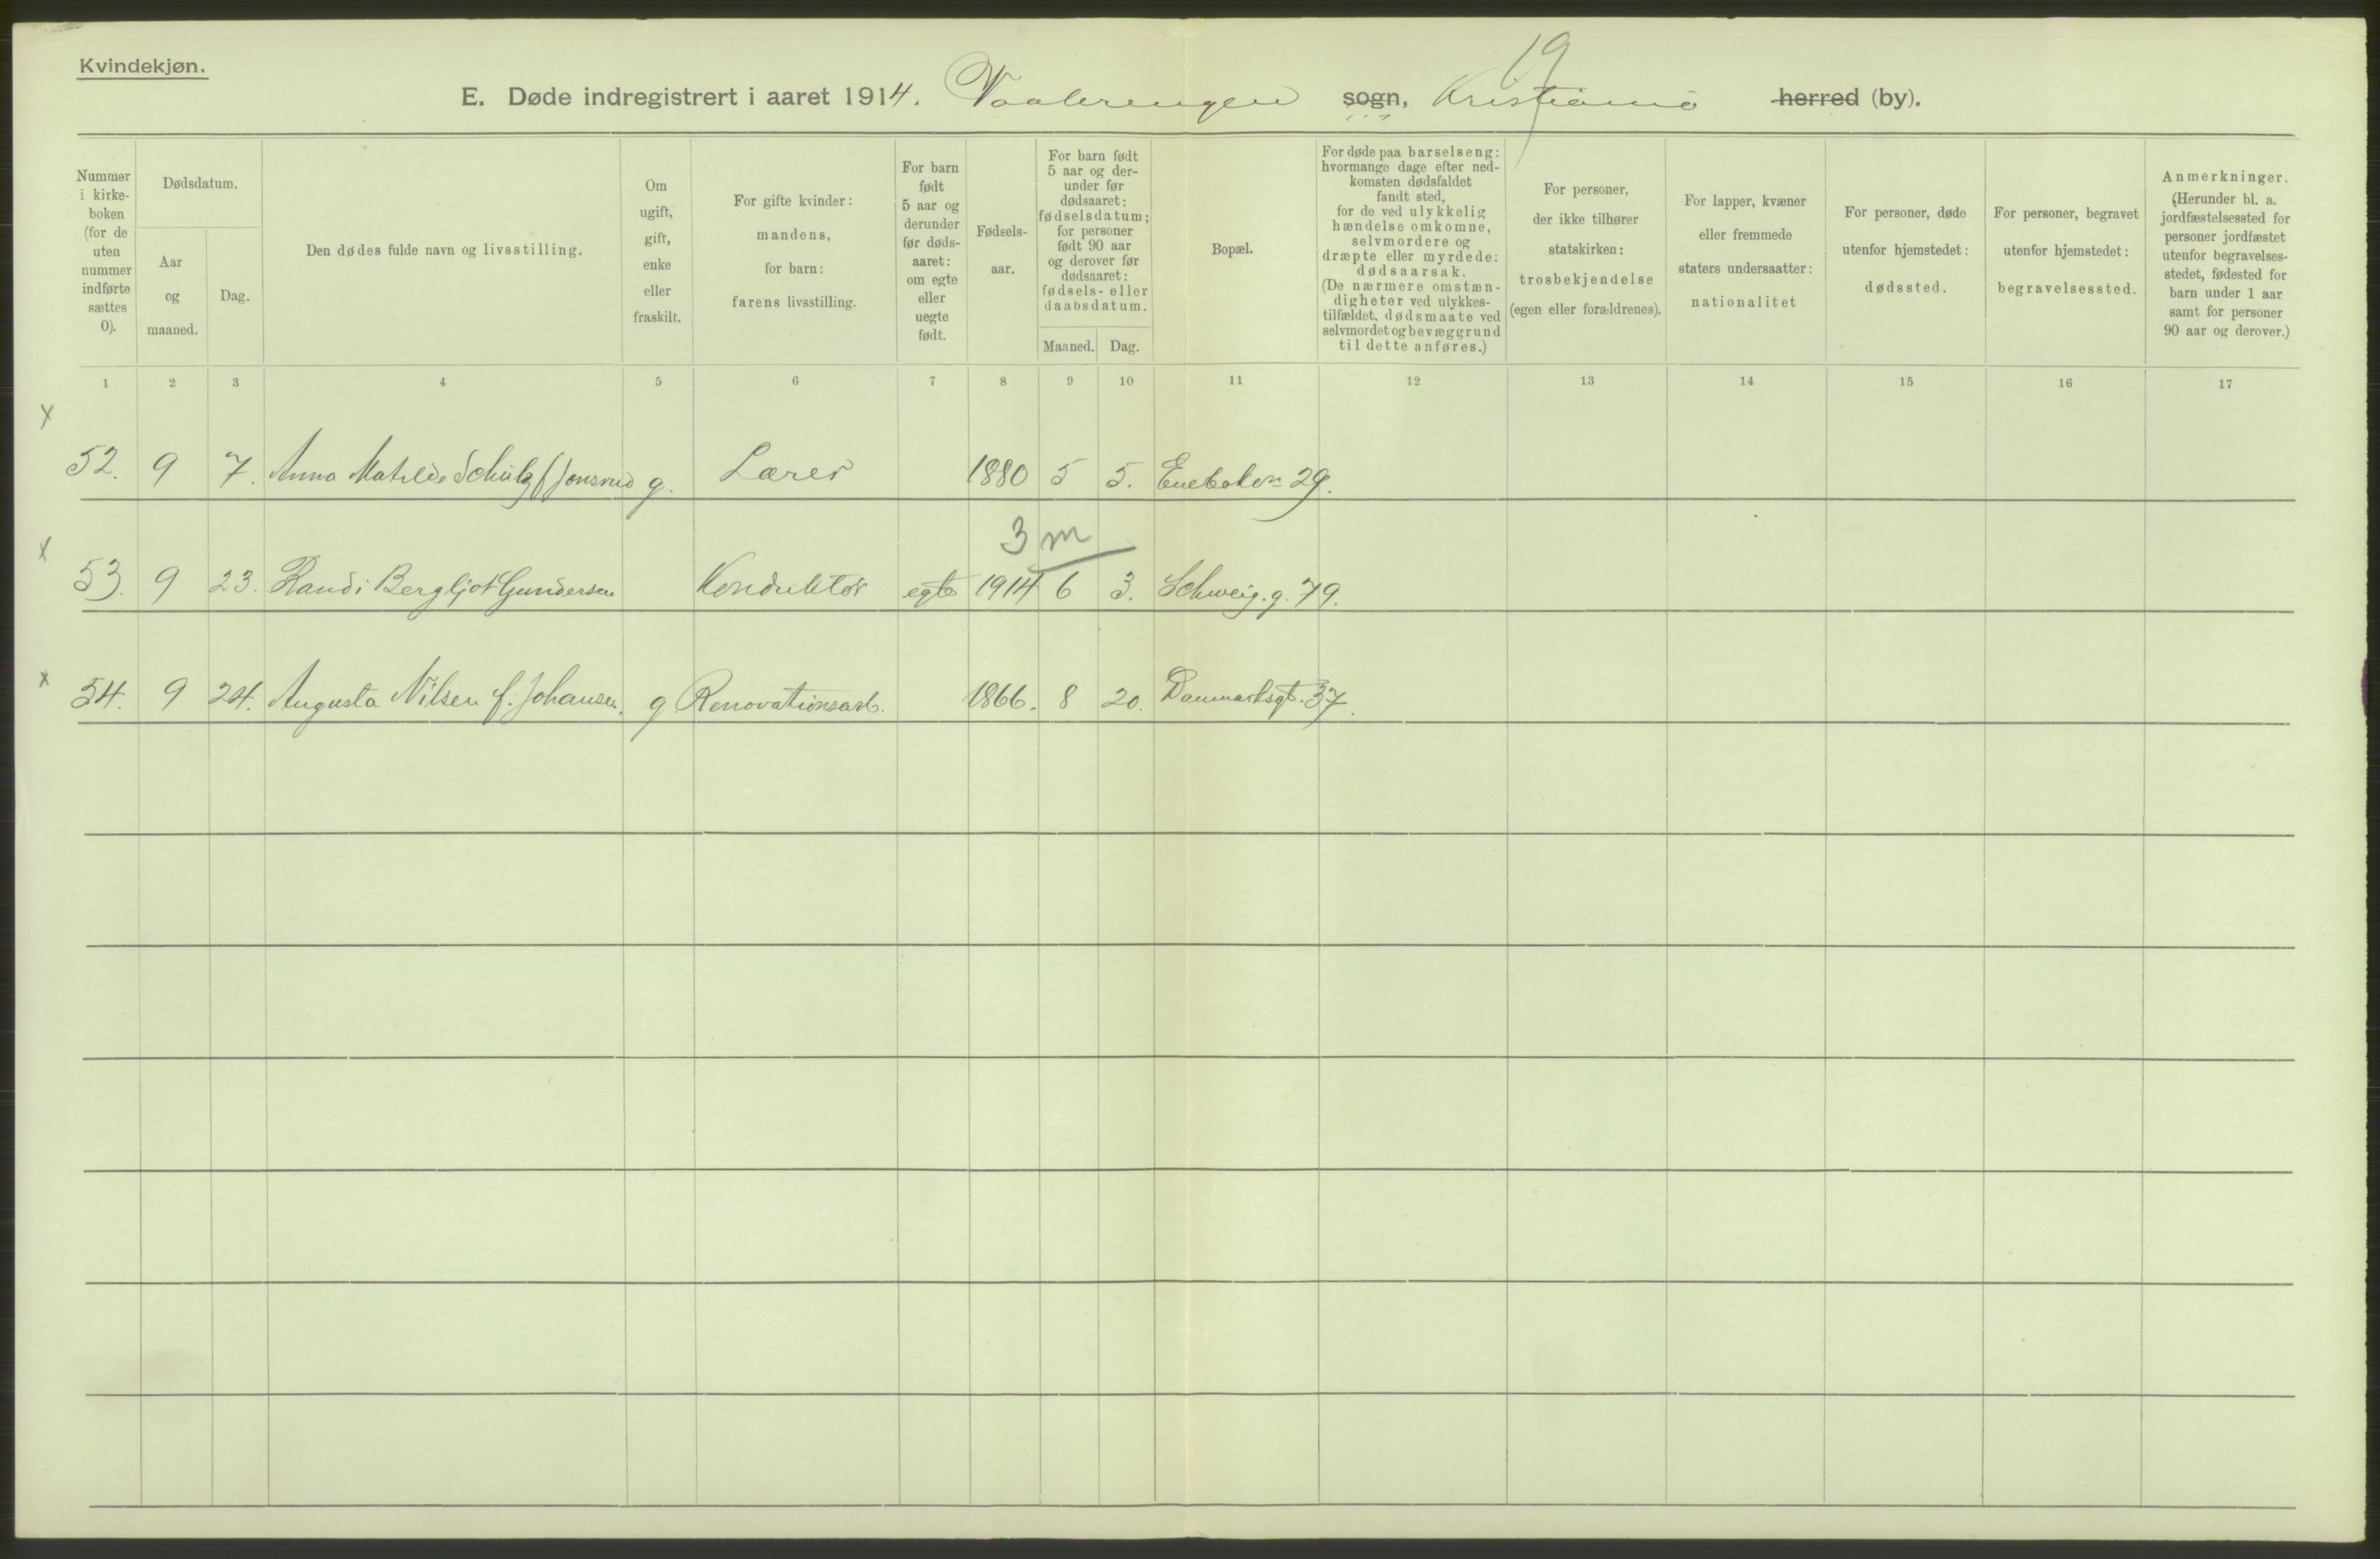 Kvindekjøn.
19
E. Døde indregistrert i aaret 1914. Vaalerengen sogn, Kristiania herred (by).
Nummer i kirke-boken (for de uten nummer indførte sættes 0).
Dødsdatum.
Aar og maaned.
Dag.
Den dødes fulde navn og livsstilling.
Om ugift, gift, enke eller fraskilt.
For gifte kvinder: mandens, for barn: farens livsstilling.
For barn født 5 aar og derunder før døds-aaret: om egte eller uegte født.
Fødsels-aar.
For barn født 5 aar og der-under før dødsaaret: fødselsdatum; for personer født 90 aar og derover før dødsaaret: fødsels- eller daabsdatum.
Maaned.
Dag.
Bopæl.
For døde paa barselseng: hvormange dage efter ned-komsten dødsfaldet fandt sted, for de ved ulykkelig hændelse omkomne, selvmordere og dræpte eller myrdede: dødsaarsak. (De nærmere omstæn-digheter ved ulykkes-tilfældet, dødsmaate ved selvmordet og bevæggrund til dette anføres.)
For personer, der ikke tilhører statskirken: trosbekjendelse (egen eller forældrenes).
For lapper, kvæner eller fremmede staters undersaatter: nationalitet
For personer, døde utenfor hjemstedet: dødssted.
For personer, begravet utenfor hjemstedet: begravelsessted.
Anmerkninger. (Herunder bl. a. jordfæstelsessted for personer jordfæstet utenfor begravelses-stedet, fødested for barn under 1 aar samt for personer 90 aar og derover.)
1 2 3 4 5 6 7 8 9 10 11 12 13 14 15 16 17
x
52. 9 7. Anna Matilde Schulz f Jonsrud g. Lærer 1880 5 5. 29.
3 m
x
53. 9 23. Randi Bergljot Gundersen Konduktør egte 1914 6 3. Schweig. g. 79.
x
54. 9 24. Augusta Nilsen f. Johansen. g Renovationsarb. 1866. 8 20. Danmarksgt. 37.